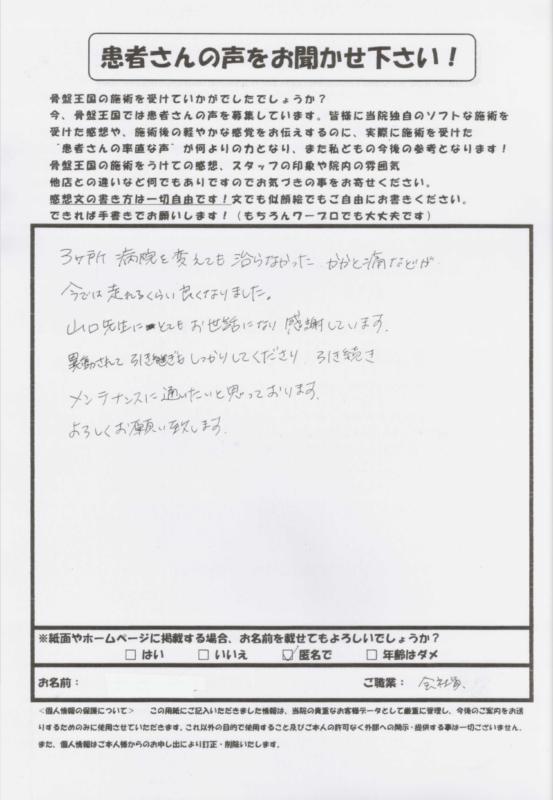 患者さんの声をお聞かせ下さい！
骨盤王国の施術を受けていかがでしたでしょうか？
今、骨盤王国では患者さんの声を募集しています。皆様に当院独自のソフトな施術を
受けた感想や、施術後の軽やかな感覚をお伝えするのに、実際に施術を受けた
“患者さんの率直な声”が何よりの力となり、また私どもの今後の参考となります！
骨盤王国の施術をうけての感想、スタッフの印象や院内の雰囲気
他店との違いなど何でもありですのでお気づきの事をお寄せください。
感想文の書き方は一切自由です！文でも似顔絵でもご自由にお書きください。
できれば手書きでお願いします！（もちろんワープロでも大丈夫です）
3ヶ所 病院を変えても治らなかった かかと痛などが
今では走れるくらい良くなりました。
山口先生にとてもお世話になり 感謝しています。
異動されて 引き継ぎもしっかりしてくださり、引き続き
メンテナンスに通いたいと思っております。
よろしくお願い致します。
※紙面やホームページに掲載する場合、お名前を載せてもよろしいでしょうか？
□ はい □ いいえ ☑ 匿名で □ 年齢はダメ
お名前： ご職業： 会社員
＜個人情報の保護について＞ この用紙にご記入いただきました情報は、当院の貴重なお客様データとして厳重に管理し、今後のご案内をお送
りするためのみに使用させていただきます。これ以外の目的で使用すること及びご本人の許可なく外部への開示・提供する事は一切ございません。
また、個人情報はご本人様からのお申し出により訂正・削除いたします。